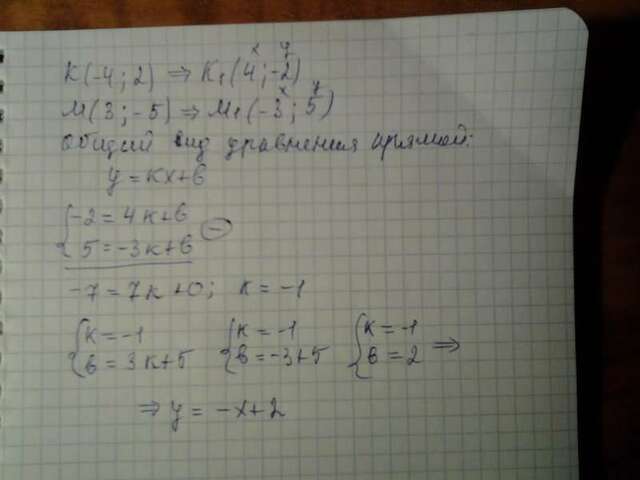 x y
K(-4; 2) ⇒ K₁(4; -2)
x y
M(3; -5) ⇒ M₁(-3; 5)
Общий вид уравнения прямой:
y = kx+b
{-2 = 4k+b
5 = -3k+b ⊖
-7 = 7k+0; k = -1
{k = -1 {k = -1 {k = -1
b = 3k+5 b = -3+5 b = 2 ⇒
⇒ y = -x+2